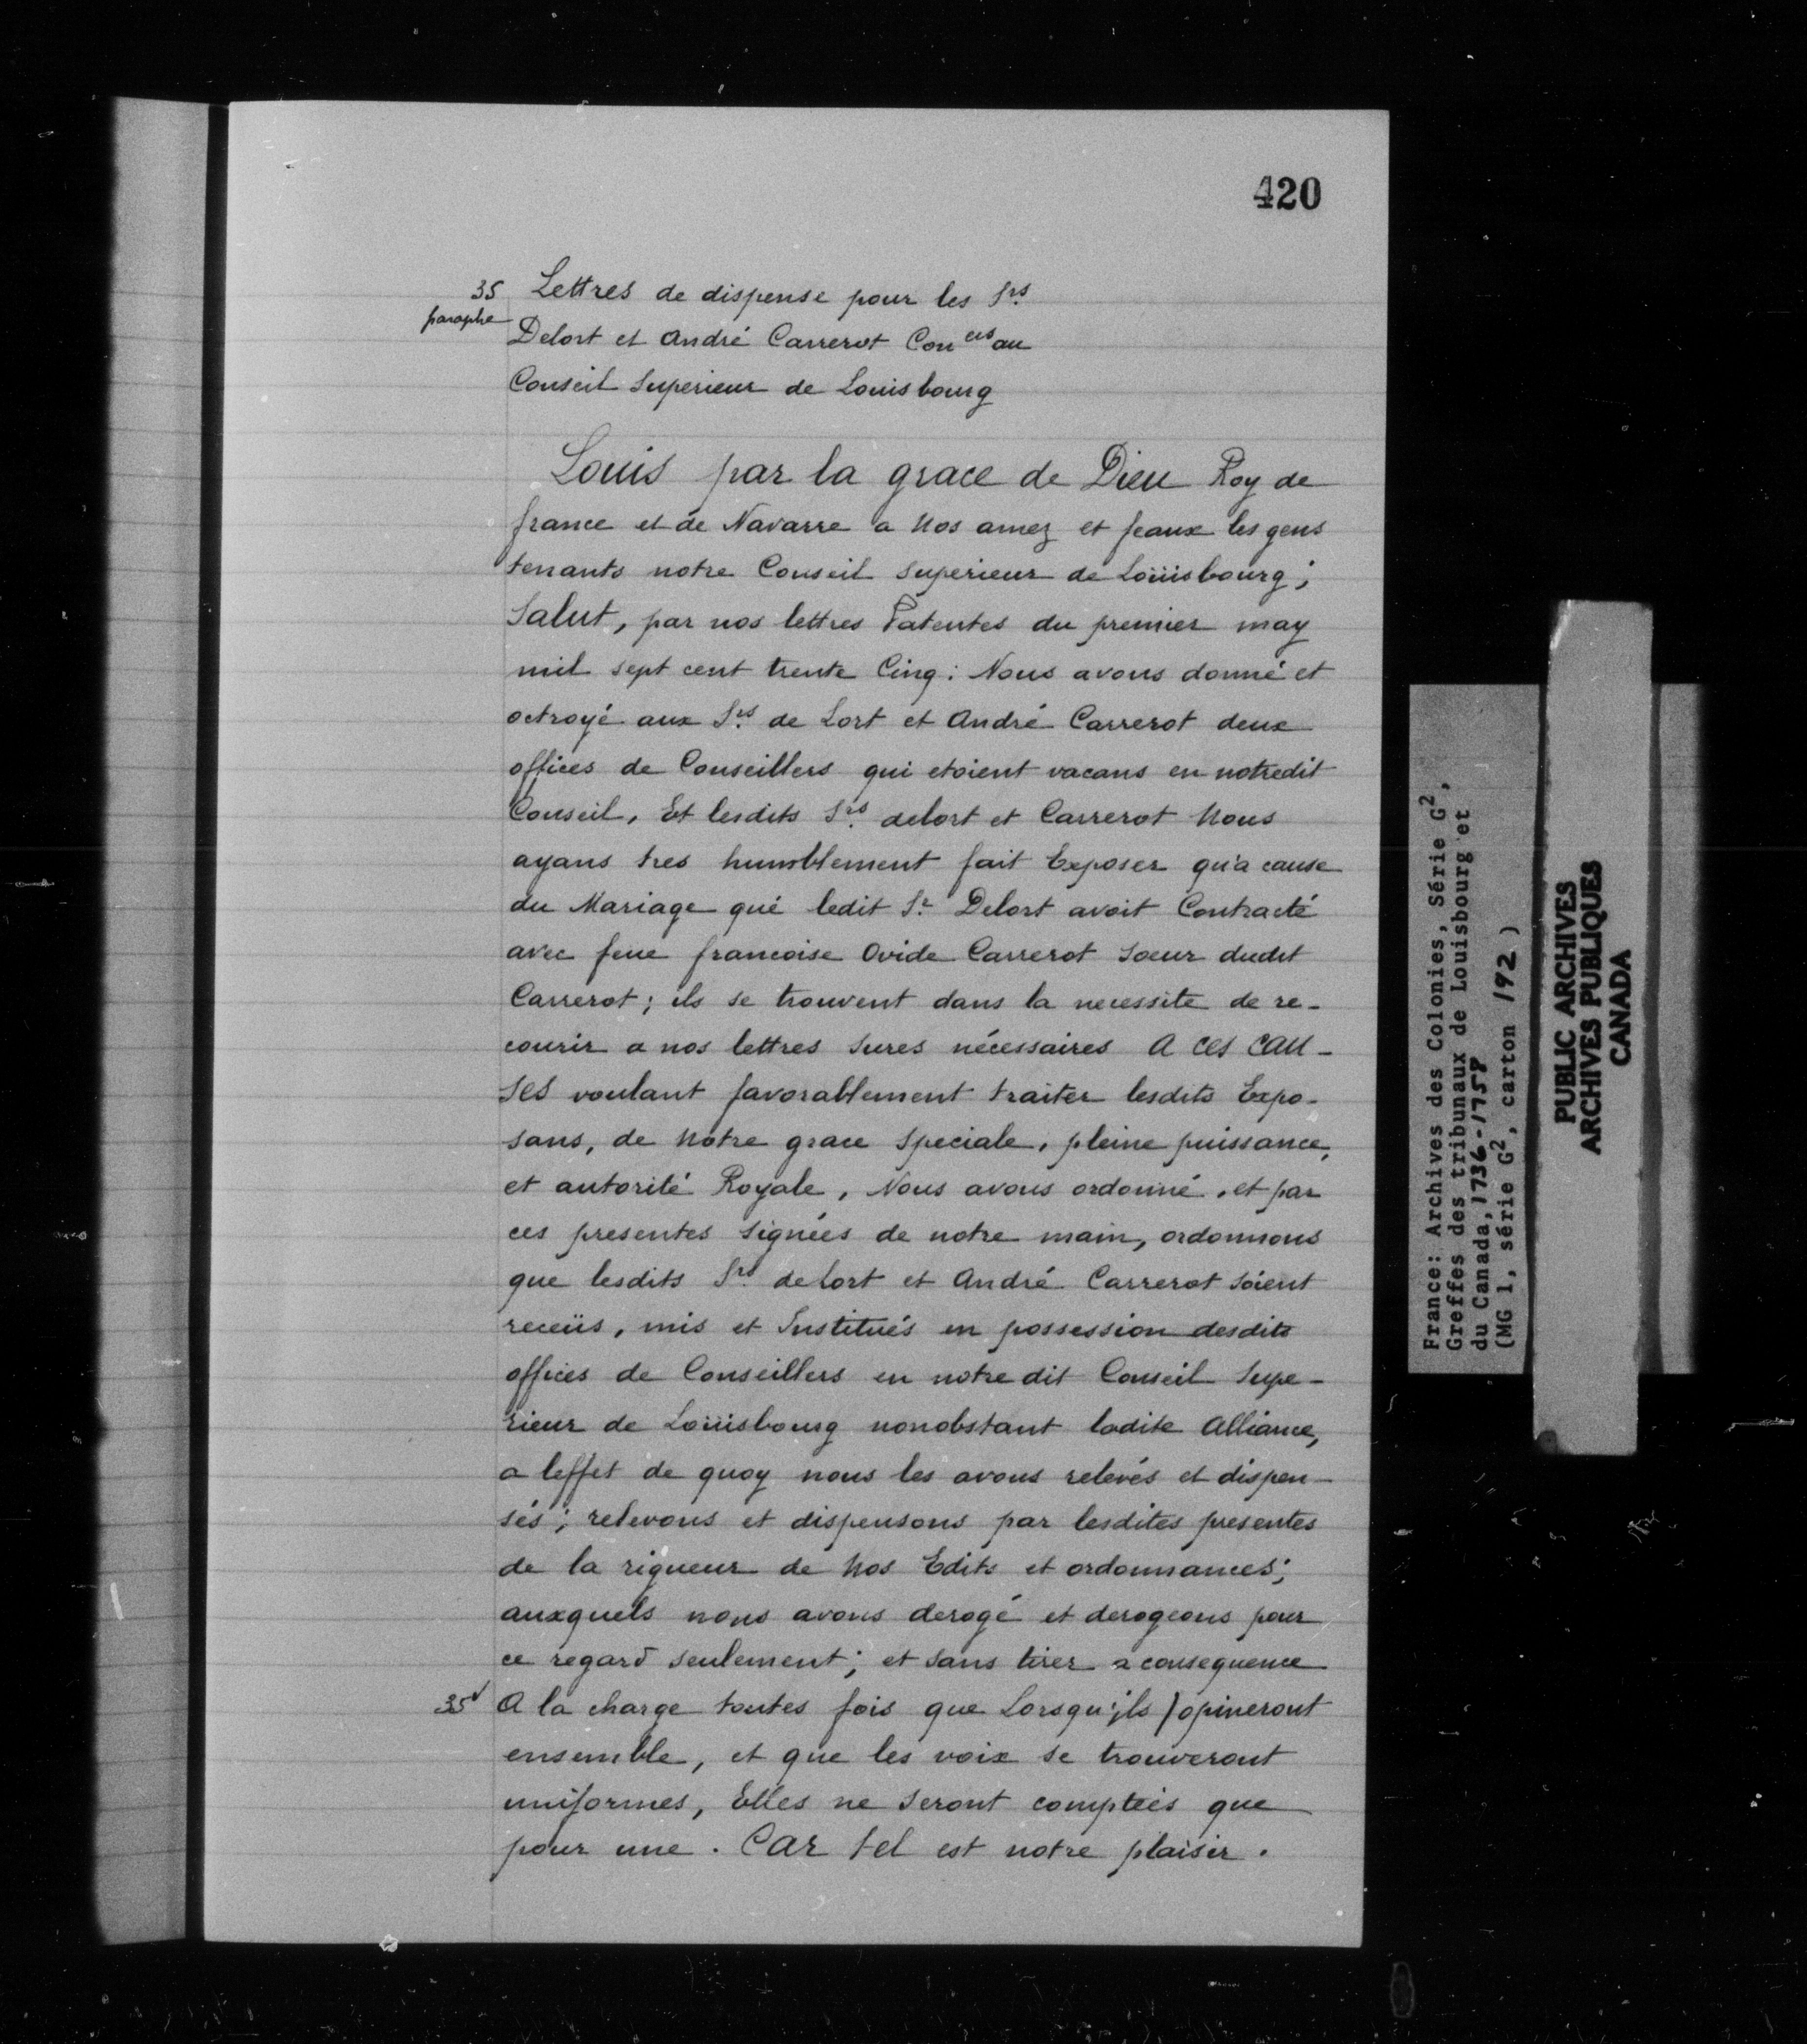 420
35 Lettres de dispense pour les Srs
paraphe
Delort et André Carrerot Con ers au
Conseil Superieur de Louisbourg
Louis par la grace de Dieu Roy de
france et de Navarre a Nos amez et feaux les gens
tenants notre Conseil superieur de Loüisbourg;
Salut, par nos lettres Patentes du premier may
mil sept cent trente Cinq: Nous avons donné et
octroyé aux Srs de Lort et André Carrerot deux
offices de Conseillers qui etoient vacans en notredit
Conseil, Et lesdits Srs delort et Carrerot Nous
ayans tres humblement fait Exposer qu'a cause
du Mariage que ledit Sr Delort avoit Contracté
avec feue francoise Ovide Carrerot soeur dudit
Carrerot; ils se trouvent dans la necessite de re-
courir a nos lettres sures nécessaires A ces cau-
ses voulant favorablement traiter lesdits Expo-
sans, de Notre grace speciale, pleine puissance,
et autorité Royale, Nous avons ordonné, et par
ces presentes signées de notre main, ordonnons
que lesdits Srs delort et André Carrerot soient
receüs, mis et Institués en possession desdits
offices de Conseillers en notre dit Conseil Supe-
rieur de Loüisbourg nonobstant ladite Alliance,
a leffet de quoy nous les avons relevés et dispen-
sés; relevons et dispensons par lesdites presentes
de la rigueur de Nos Edits et ordonnances;
auxquels nous avons derogé et derogeons pour
ce regard seulement; et sans tirer a consequence
35v A la charge toutes fois que Lorsqu'ils / opineront
ensemble, et que les voix se trouveront
uniformes, Elles ne seront comptées que
pour une. Car tel est notre plaisir.
France: Archives des Colonies, Série G2,
Greffes des tribunaux de Louisbourg et
du Canada, 1736-1758
(MG 1, série G2, carton 192)
PUBLIC ARCHIVES
ARCHIVES PUBLIQUES
CANADA